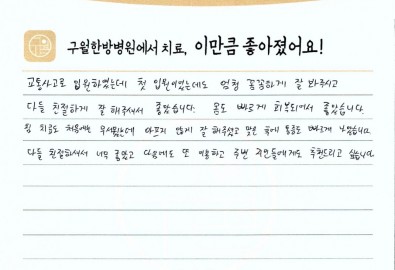 구월한방병원에서 치료, 이만큼 좋아졌어요!
교통사고로 입원하였는데 첫 입원이였는데도 엄청 꼼꼼하게 잘 봐주시고
다들 친절하게 잘 해주셔서 좋았습니다. 몸도 빠르게 회복되어서 좋았습니다.
침 치료도 처음에는 무서웠는데 아프지 않게 잘 해주셨고 맞은 후에 통증도 빠르게 나았습니다
다들 친절하셔서 너무 좋았고 다음에도 또 이용하고 주변 지인들에게도 추천드리고 싶습니다.